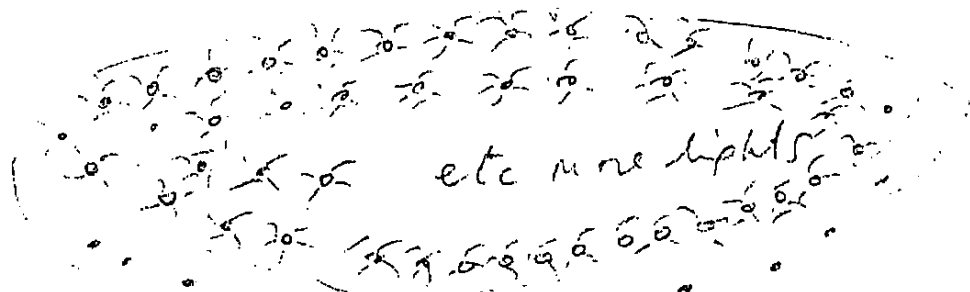 etc more lights